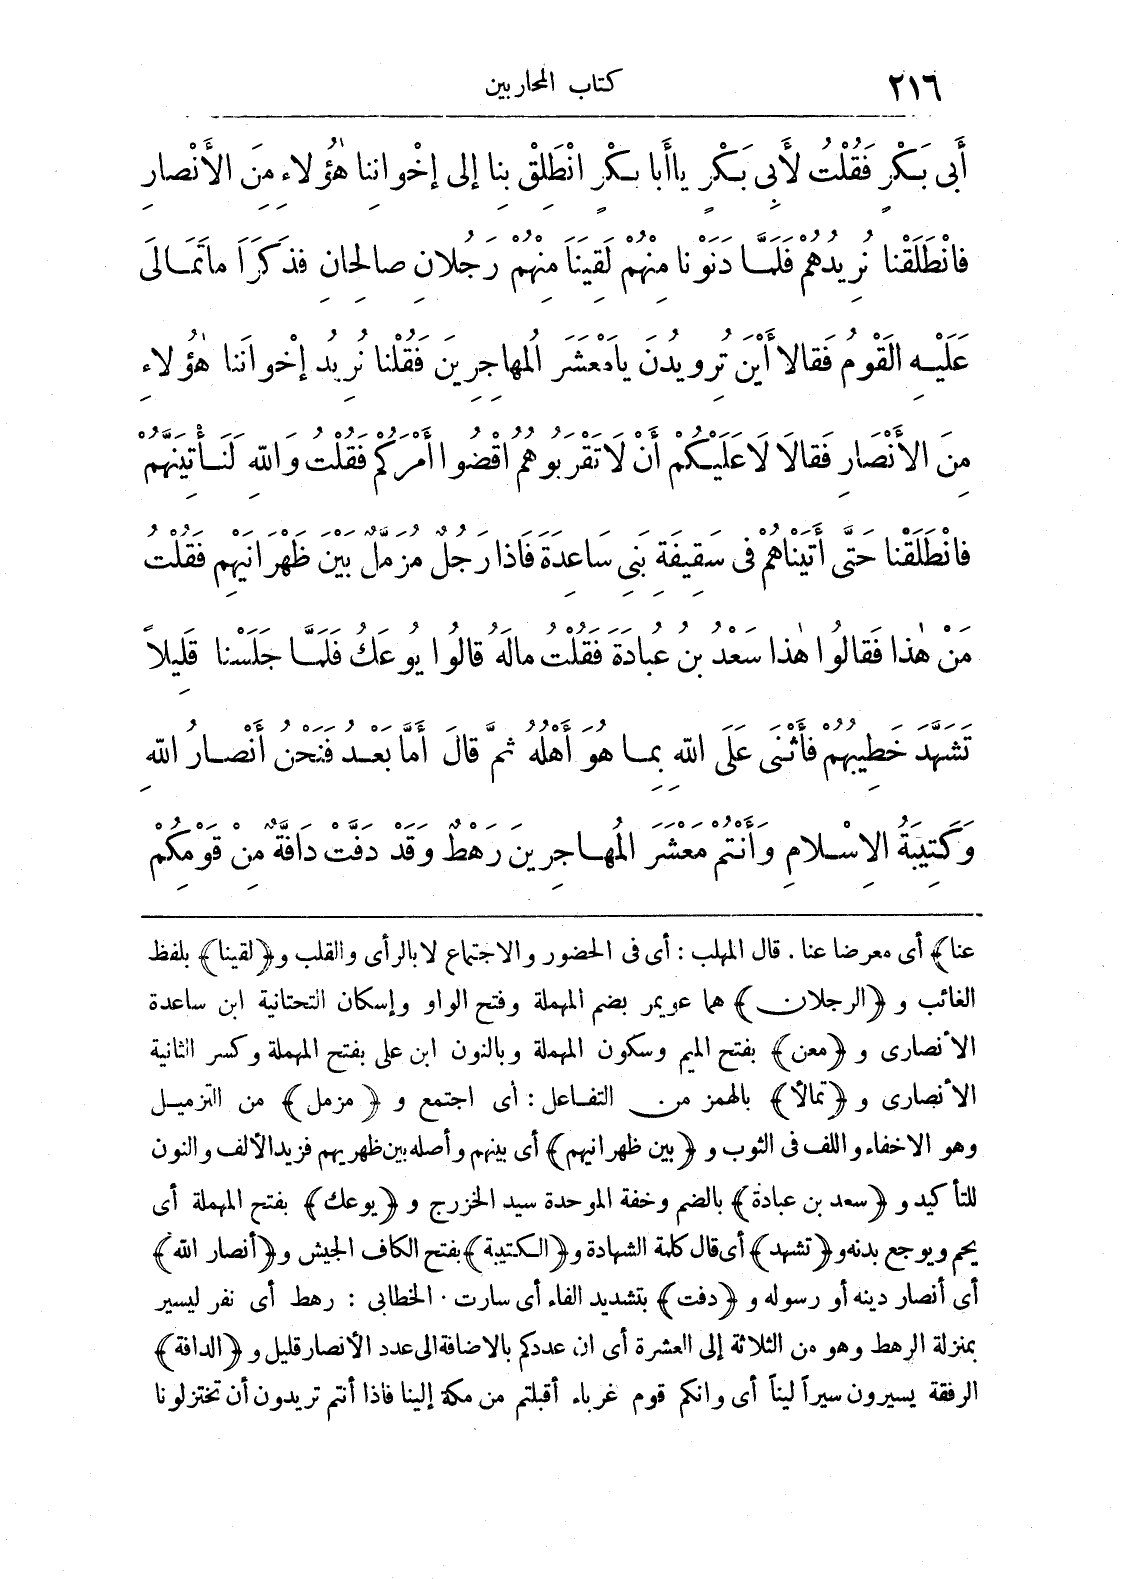 ٢١٦ كتاب المحاربين
أَبِى بَكْرٍ فَقُلْتُ لِأَبِى بَكْرٍ ياأَبا بكْرٍ انْطَلِقْ بِنا إِلى إِخْوانِنا هٰؤُلاءِ مِنَ الأَنْصارِ
فانْطَلَقْنا نُرِيدُهُمْ فَلَمَّا دَنَوْنا مِنْهُمْ لَقِيَنَا مِنْهُمْ رَجُلانِ صالِحانِ فذَكَرَا ماتَمَالَى
عَلَيْهِ القَوْمُ فَقالا أَيْنَ تُرِويدُنَ يامَعْشَرَ المُهاجِرِينَ فَقُلْنا نُرِيدُ إِخْوانَنا هٰؤُلاءِ
مِنَ الأَنْصَارِ فَقالَا لَاعَلَيْكُمْ أَنْ لاتَقْرَبُوهُمُ اقْضُوا أَمْرَكُمْ فَقُلْتُ وَاللهِ لَنَأْتِيَنَّهُمْ
فانْطَلَقْنا حَتَّى أَتَيْناهُمْ فِى سَقِيفَةِ بَنِى سَاعِدَةَ فَاذا رَجُلٌ مُزَمَّلٌ بَيْنَ ظَهْرَانَيْهِم فَقُلْتُ
مَنْ هٰذا فَقالُوا هٰذا سَعْدُ بنُ عُبادَةَ فَقُلْتُ مالَهُ قالُوا يُوعَكُ فَلَمَّا جَلَسْنا قَلِيلاً
تَشَهَّدَ خَطِيبُهُمْ فأَثْنَى عَلَى اللهِ بِما هُوَ أَهْلُهُ ثُمَّ قالَ أَمَّا بَعْدُ فَنَحْنُ أَنْصارُ اللهِ
وَكَتِيبَةُ الاِسْلامِ وَأَنْتُمْ مَعْشَرَ المُهاجِرِينَ رَهْطٌ وَقَدْ دَفَّتْ دَافَّةٌ مِنْ قَوْمِكُمْ
عنا﴾ أى معرضا عنا. قال المهلب : أى فى الحضور والاجتماع لابالرأى والقلب و﴿لقينا﴾ بلفظ
الغائب و ﴿الرجلان﴾ هما عويمر بضم المهملة وفتح الواو وإسكان التحتانية ابن ساعدة
الأنصارى و ﴿معن﴾ بفتح الميم وسكون المهملة وبالنون ابن على بفتح المهملة وكسر الثانية
الأنصارى و ﴿تمالأ﴾ بالهمز من التفاعل : أى اجتمع و ﴿مزمل﴾ من التزميل
وهو الاخفاء واللف فى الثوب و ﴿بين ظهرانيهم﴾ أى بينهم وأصله بين ظهريهم فزيد الألف والنون
للتأكيد و ﴿سعد بن عبادة﴾ بالضم وخفة الموحدة سيد الخزرج و ﴿يوعك﴾ بفتح المهملة أى
يحم ويوجع بدنه و﴿تشهد﴾ أى قال كلمة الشهادة و﴿الكتيبة﴾ بفتح الكاف الجيش و﴿أنصار الله﴾
أى أنصار دينه أو رسوله و ﴿دفت﴾ بتشديد الفاء أى سارت . الخطابى : رهط أى نفر ليسير
بمنزلة الرهط وهو من الثلاثة إلى العشرة أى ان عددكم بالاضافة الى عدد الأنصار قليل و ﴿الدافة﴾
الرفقة يسيرون سيراً ليناً أى وانكم قوم غرباء أقبلتم من مكة إلينا فاذا أنتم تريدون أن تختزلونا